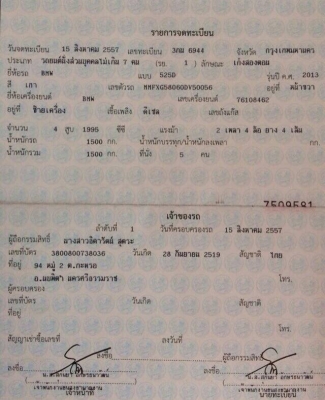 รายการจดทะเบียน
วันจดทะเบียน 15 สิงหาคม 2557 เลขทะเบียน 3กม 6944 จังหวัด กรุงเทพมหานคร
ประเภท รถยนต์นั่งส่วนบุคคลไม่เกิน 7 คน (รย. 1 ) ลักษณะ เก๋งสองตอน
ยี่ห้อรถ BMW แบบ 525D รุ่นปี ค.ศ. 2013
สี เทา เลขตัวรถ อยู่ที่
ยี่ห้อเครื่องยนต์ BMW เลขเครื่องยนต์ 76108462
อยู่ที่ เชื้อเพลิง ดีเซล เลขถังแก๊ส
จำนวน 4 สูบ 1995 ซีซี แรงม้า 2 เพลา 4 ล้อ ยาง 4 เส้น
น้ำหนักรถ 1500 กก. น้ำหนักบรรทุก/น้ำหนักลงเพลา กก.
น้ำหนักรวม 1500 กก. ที่นั่ง 5 คน
เจ้าของรถ
ลำดับที่ 1 วันที่ครอบครองรถ 15 สิงหาคม 2557
ผู้ถือกรรมสิทธิ์
เลขที่บัตร 3800800738036 วันเกิด 28 กันยายน 2519 สัญชาติ ไทย
ที่อยู่ 94 หมู่ 2
โทร.
ผู้ครอบครอง
เลขที่บัตร วันเกิด สัญชาติ
ที่อยู่ โทร.
สัญญาเช่าซื้อเลขที่ ลงวันที่
ลงชื่อ ผู้ถือกรรมสิทธิ์
ลงชื่อ ลงชื่อ
เจ้าหน้าที่ นายทะเบียน